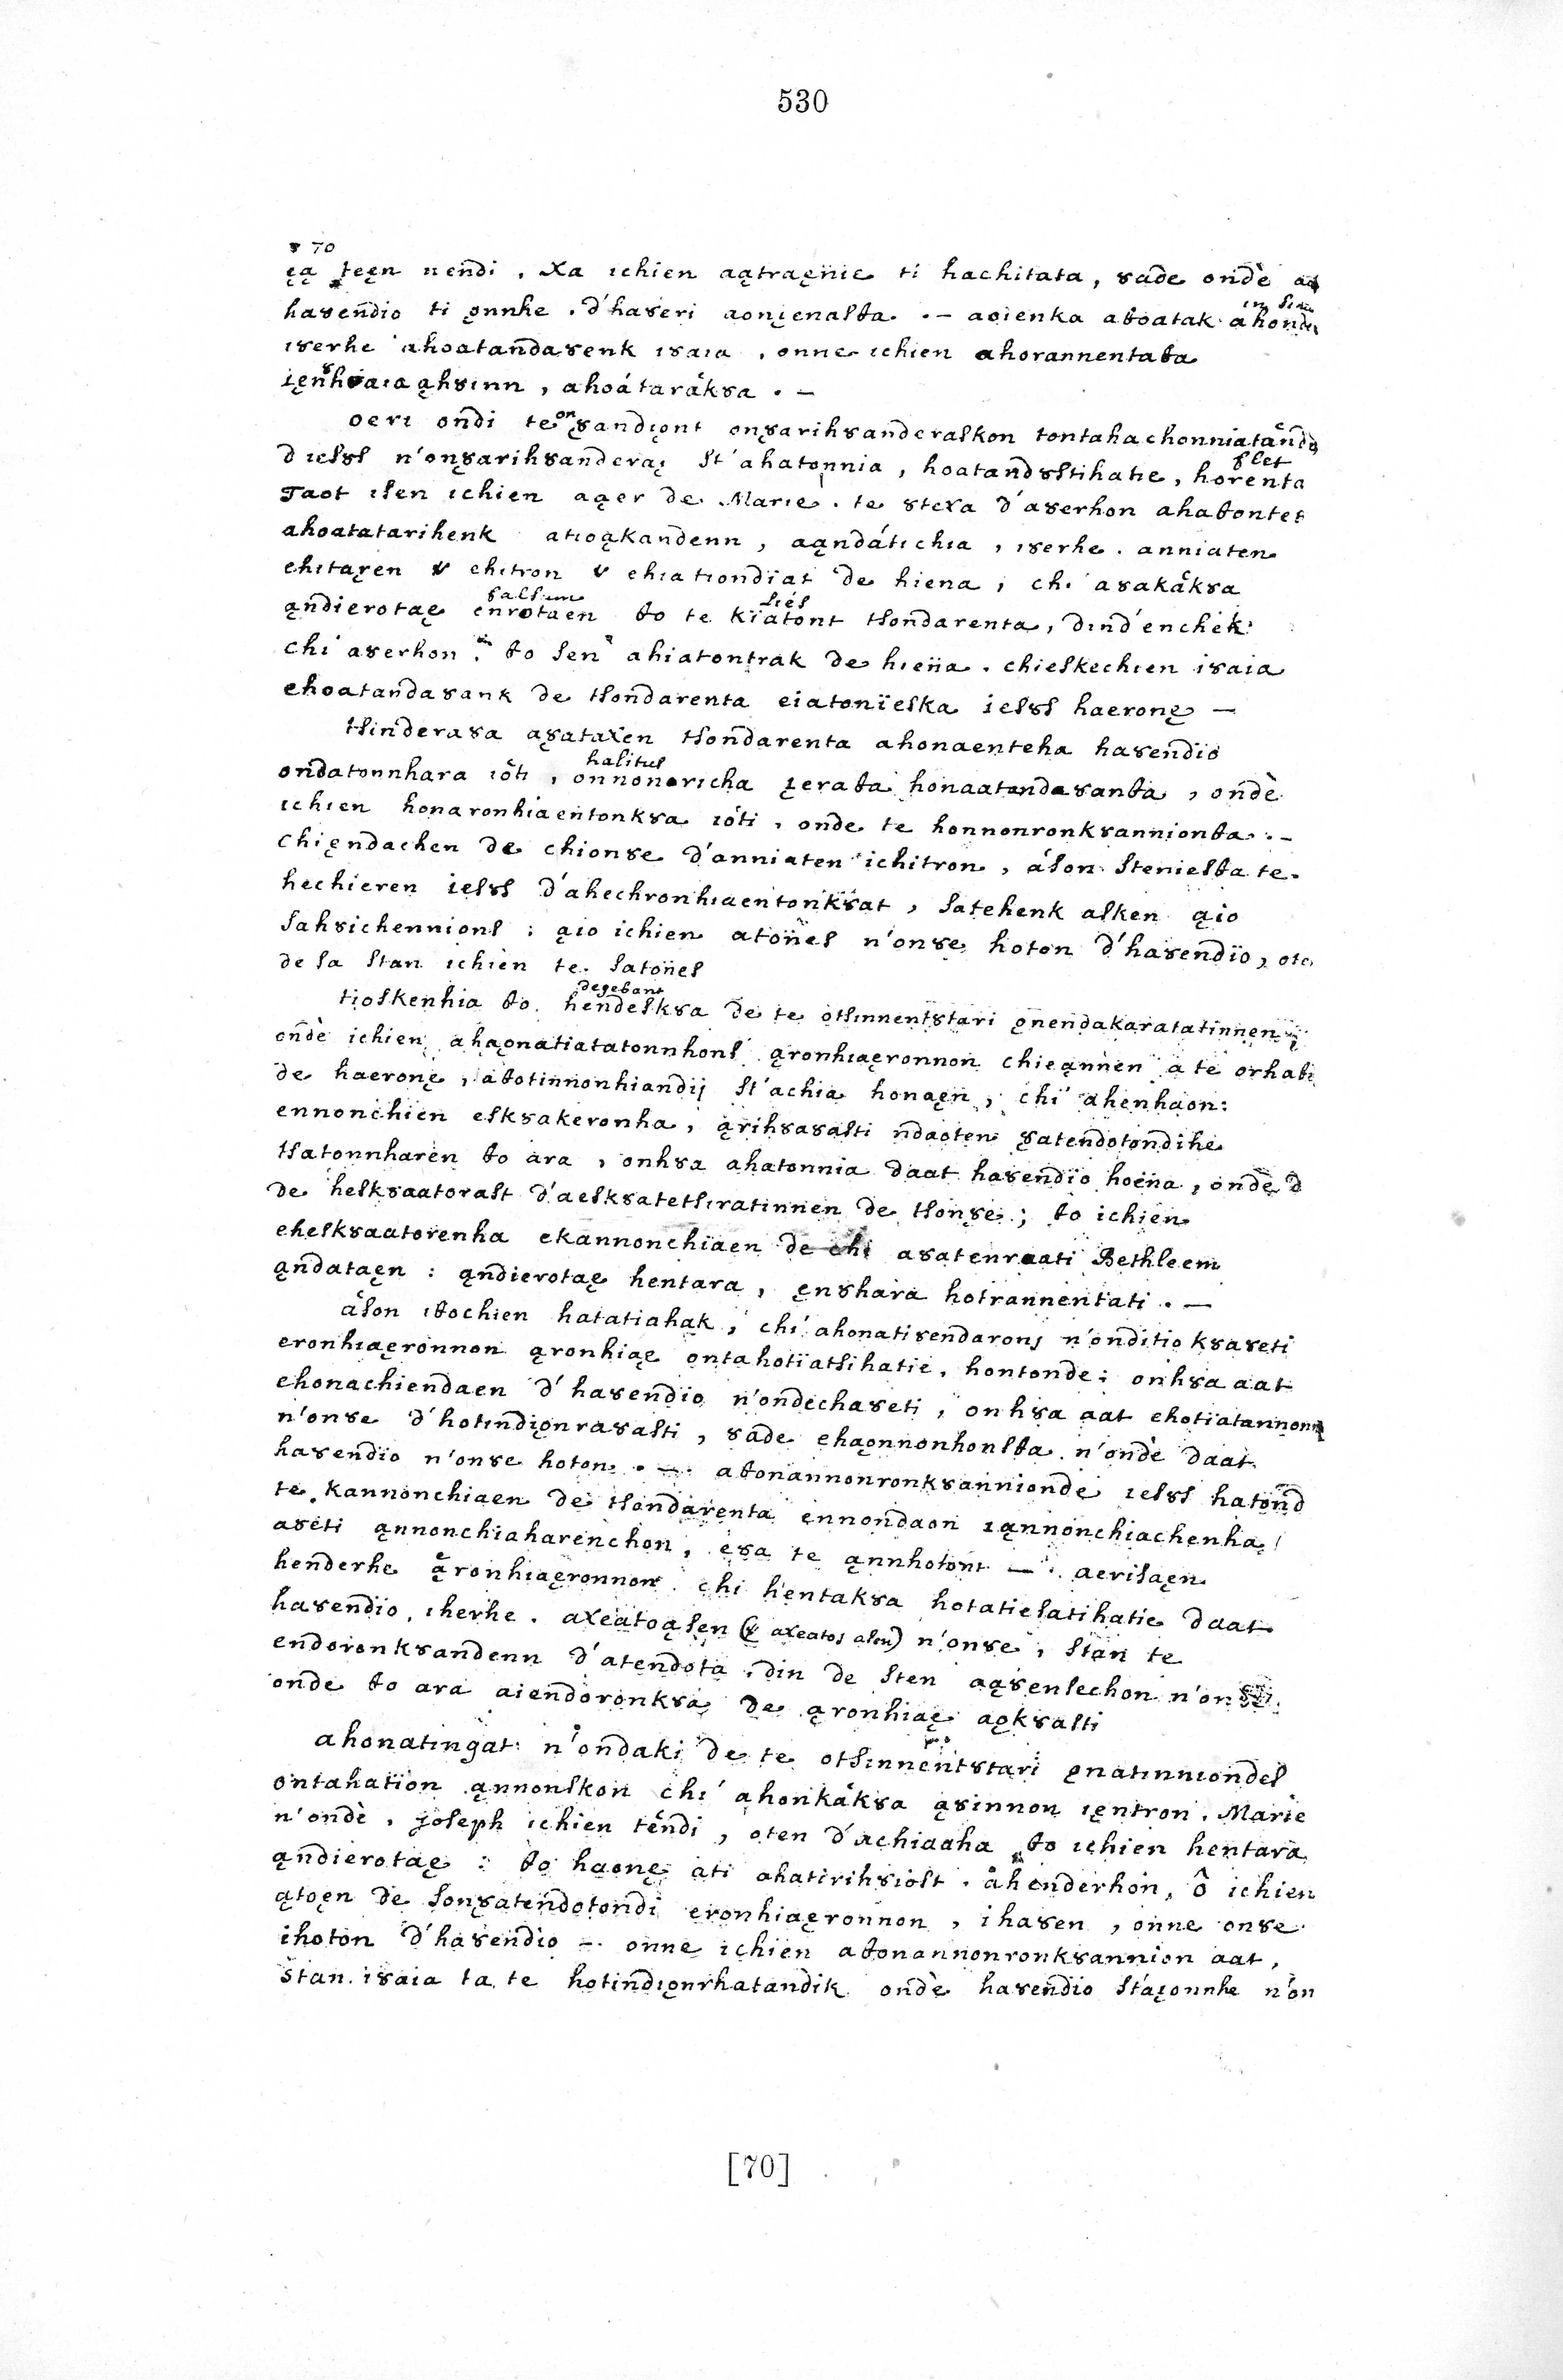 530
8 70
ąą ţeęn nendi. Xa ichien aątraęnie ti hachitata, ȣade ondè
haȣendio ti ǫnnhe. d'haȣeri aonįenasta. — aoienka aƀoatak
iȣerhe ahoatandaȣenk iȣaia, onne ichien ahorannentaƀa
ąhȣinn, ahoátaràkȣa. —
oeri ondi te on ȣandiǫnt onȣarihȣanderaskon tontahachonniatànde
d iesȣs n'onȣarihȣanderaį st'ahatonnia, hoatandȣstihatie, horenta
flet
Taot isen ichien aąer de Marie. te ȣtexa d'aȣerhon ahaƀontet
ahoatatarihenk atioąkandenn, aąndátichia, iȣerhe. anniaten
ehitaręn v chitron v ehiationdiat de hiena, chi aȣakàkȣa
falsum siés
ąndierotaę enrotaen ƀo te kïatont tsondarenta, dind'enchek
chi aȣerhon. ƀo sen ahiatontrak de hiena. chieskechien iȣaia
ehoatandaȣank de tsondarenta eiatonïeska iesȣs haeronę —
tsinderaȣa aȣataxen tsondarenta ahonaenteha haȣendio
halitus
ondatonnhara iòti, onnonoricha įeraƀa honaatandaȣanƀa, ondè
ichien honaronhiaentonkȣa ióti, onde te honnonronkȣannionƀa. —
chięndachen de chionȣe d'anniaten ichitron, áson steniesƀa te
hechieren iesȣs d'ahechronhiaentonkȣat, satehenk asken ąio
sahȣichennions : ąio ichien atones n'onȣe hoton d'haȣendio,
de sa stan ichien te satones
degebant
tioskenhia ƀo hendeskȣa de te otsinnentȣtari ǫnendakaratatinnen
ondè ichien ahaǫnatiatatonnhons ąronhiaęronnon chieąnnen a te orhaƀe
de haeronę, aƀotinnonhiandij st'achia honaęn, chi ahenhaon:
ennonchien eskȣakeronha, ąrihȣaȣasti ndaoten ȣatendotondihe
tsatonnharen ƀo ara, onhȣa ahatonnia daat haȣendio hoëna, ondè d
de heskȣaatorast d'aeskȣatetsiratinnen de tsonȣe; ƀo ichien
eheskȣaatorenha ekannonchiaen de chi aȣatenraati Bethleem
ąndataęn : ąndierotaę hentara, ęnȣhara hotrannentati. —
àson iƀochien hatatiahak, chi ahonatiȣendarons n'onditiokȣaȣeti
eronhiaęronnon ąronhiaę ontahotiatsihatie, hontonde: onhȣa aat
ehonachiendaen d'haȣendio n'ondechaȣeti, onhȣa aat ehotiatannonn
n'onȣe d'hotindiǫnraȣasti, ȣade ehaǫnnonhonsƀa n'ondè daat
haȣendio n'onȣe hoton. — aƀonannonronkȣannionde iesȣs hatond
te kannonchiaen de tsondarenta ennondaon ιąnnonchiachenha!
aȣeti ąnnonchiaharenchon, eȣa te ąnnhotont — aerisaęn
henderhe ąronhiaęronnon chi hentakȣa hotatiesatihatie daat
haȣendio, iherhe. axeatoąsen (v axeatos asen) n'onȣe, stan te
endoronkȣandenn d'atendota, din de sten aąȣensechon n'onȣe
onde ƀo ara aiendoronkȣa de ąronhiaę aǫkȣasti
ahonatingat n'ondaki de te otsinnentȣtari ęnatinniondes
ontahation ąnnonskon chi ahonkàkȣa ąȣinnon ięntron. Marie
n'ondè. Joseph ichien tèndi, oten d'achiaaha ƀo ichien hentara
ąndierotaę : ƀo haonę ati ahatirihȣiost. åhenderhon, ô ichien
ątoęn de sonȣatendotondi eronhiaęronnon, ihaȣen, onne onȣe
ihoton d'haȣendio — onne ichien aƀonannonronkȣannion aat,
stan iȣaia ta te hotindiǫnrhatandik ondè haȣendio st'aįonnhe n'on
[70]